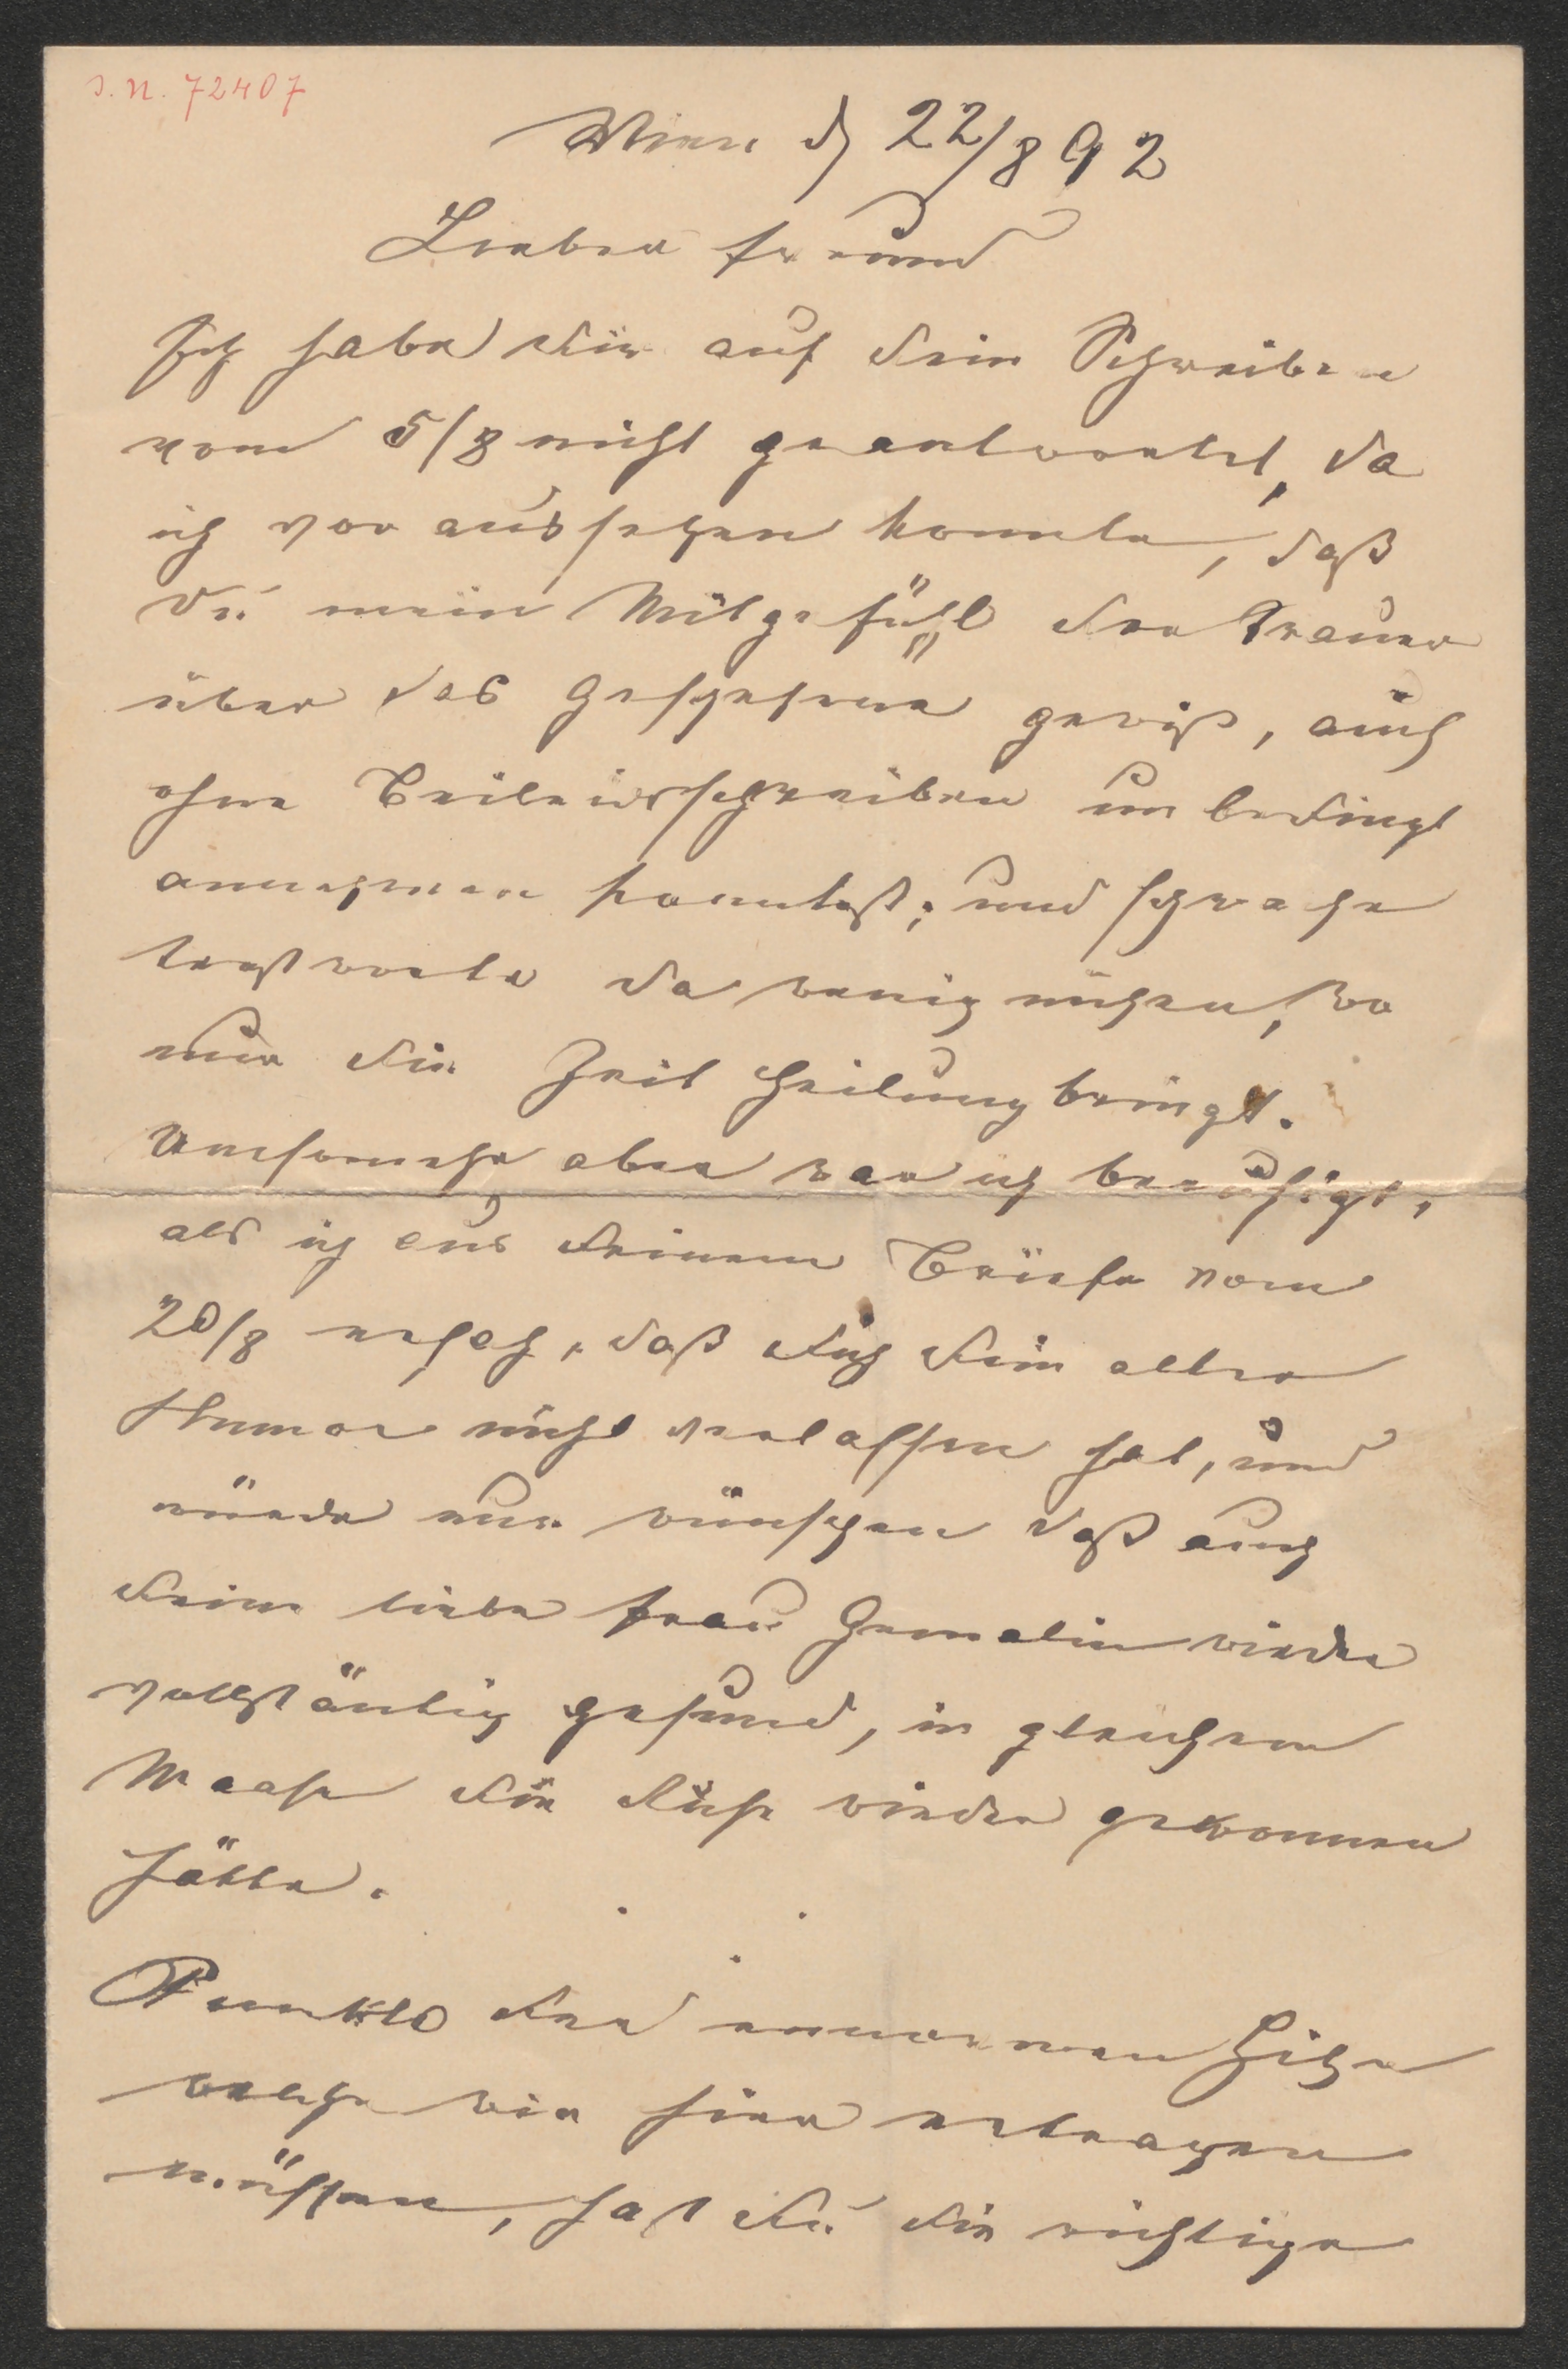 I. N. 72407
Wien d 22/8 92
Lieber Freund
Ich habe Dir auf Dein Schreiben
vom 5/8 nicht geantwortet, da
ich voraussehen konnte, daß
Du mein Mitgefühl der Trauer
über das Geschehene gewiß, auch
ohne Beileidsschreiben unbedingt
annehmen konntest; und schwache
trostworte da wenig nützen, wo
nur die Zeit Heilung bringt.
Umsomehr aber war ich beruhigt,
als ich aus Deinem Briefe vom
20/8 ersah, daß Dich Dein alter
Humor nicht verlassen hat, und
würde nur wünschen daß auch
Deine liebe Frau Gemalin wieder
vollständig gesund, in gleichem
Maase die Ruhe wieder gewonnen
hätte.
Punkto der enormen Hitze
welche wir hier ertragen
müssen, hast Du die richtige